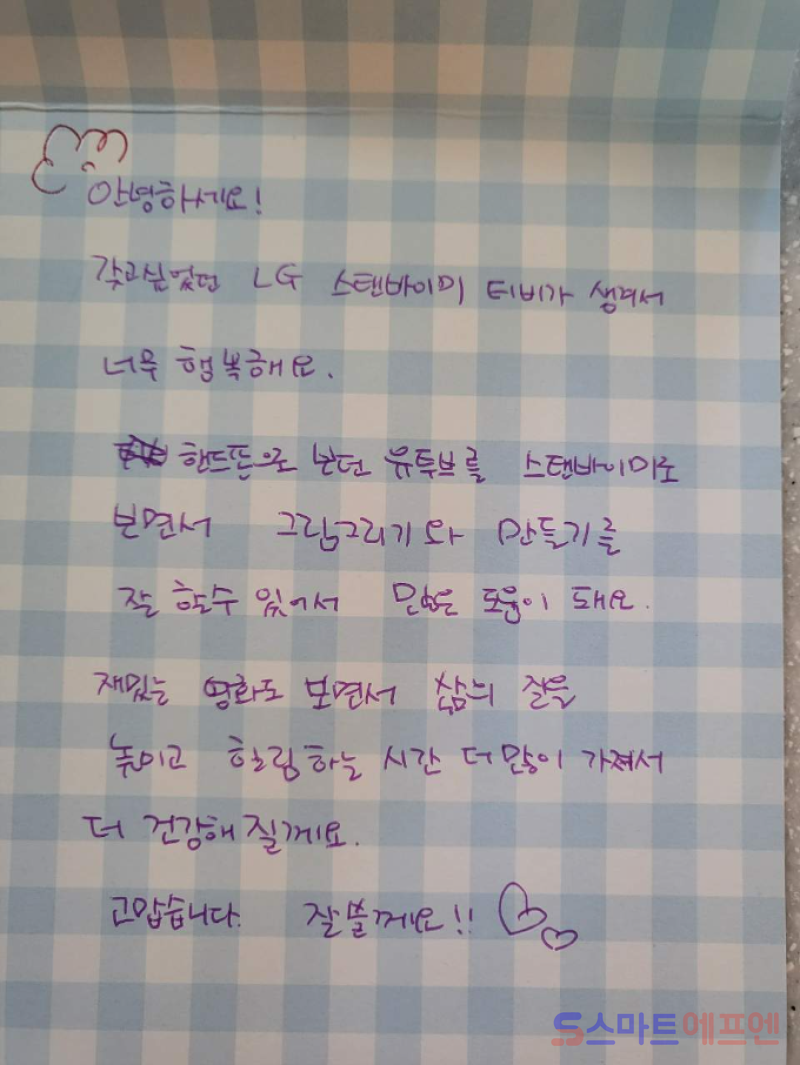 안녕하세요!
갖고싶었던 LG 스탠바이미 티비가 생겨서
너무 행복해요.
핸드폰으로 보던 유투브를 스탠바이미로
보면서 그림그리기와 만들기를
잘 할수 있어서 많은 도움이 돼요.
재밌는 영화도 보면서 삶의 질을
높이고 힐링하는 시간 더 많이 가져서
더 건강해 질게요.
고맙습니다. 잘볼게요!!
스마트에프엔